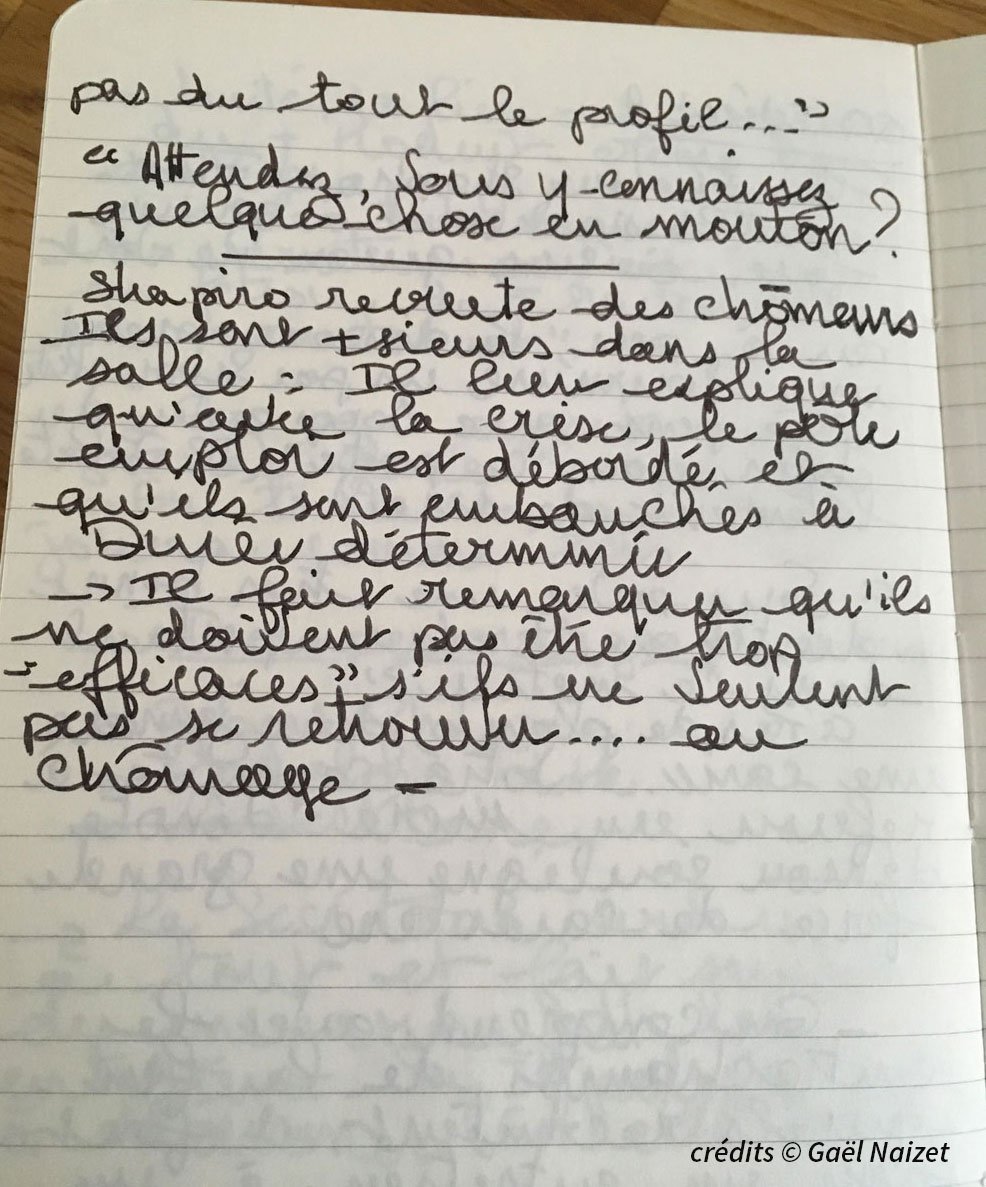 pas du tout le profil..."
"Attendez, Vous y connaissez
quelque chose en mouton?
Shapiro recrute des chômeurs
Ils sont +sieurs dans la
salle : Il leur explique
qu'avec la crise, le pole
emploi est débordé, et
qu'ils sont embauchés à
Durée déterminée
-> Il fait remarquer qu'ils
ne doivent pas être trop
"efficaces" s'ils ne veulent
pas se retrouver.... au
chômage -
crédits © Gaël Naizet